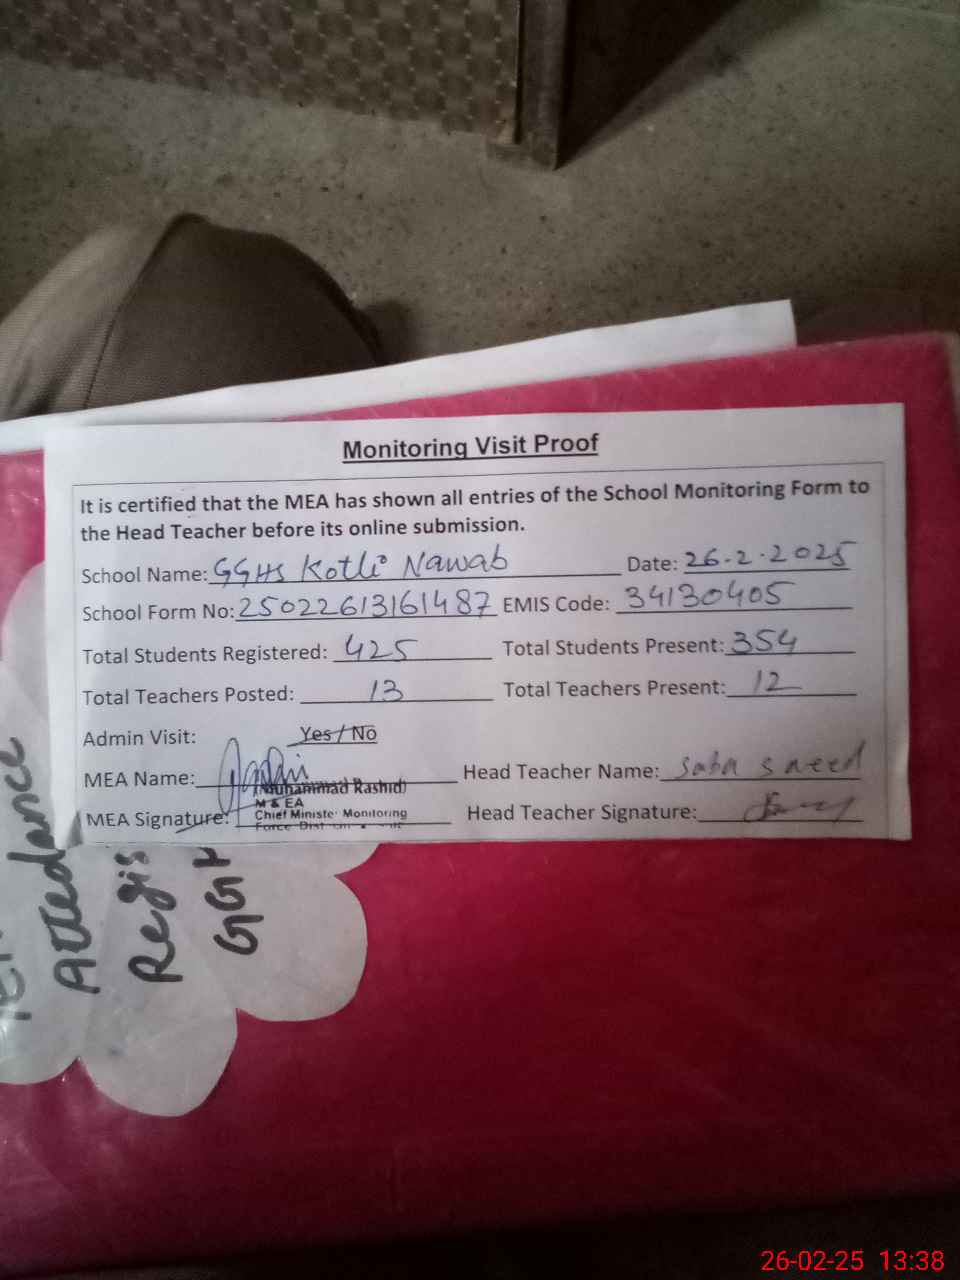 Monitoring Visit Proof
It is certified that the MEA has shown all entries of the School Monitoring Form to
the Head Teacher before its online submission.
School Name: GGHS Kotli Nawab Date: 26-2-2025
School Form No: 25022613161487 EMIS Code: 34130405
Total Students Registered: 425 Total Students Present: 354
Total Teachers Posted: 13 Total Teachers Present: 12
Admin Visit: Yes / No
MEA Name: Head Teacher Name: Saba Saeed
(Muhammad Rashid)
M & EA
MEA Signature: Chief Minister Monitoring Head Teacher Signature:
Force Dist
Attedance
Regis
GGH
26-02-25 13:38